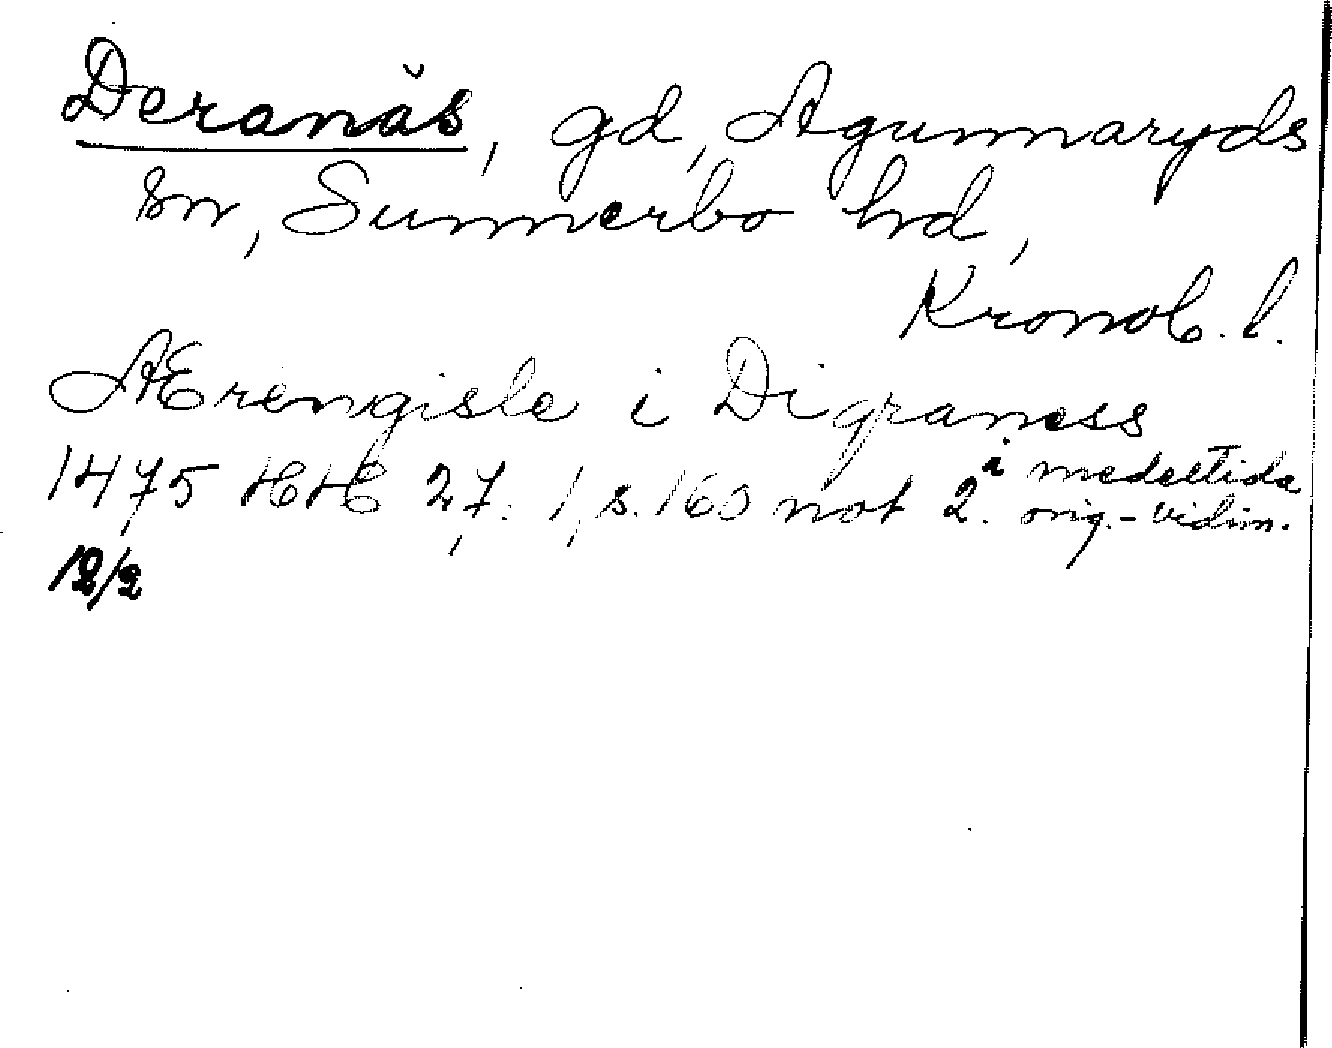 Deranäs, gd, Agunnaryds
sn, Sunnerbo hd,
Kronob. l.
Ærengisle i Digraness
1475 HH 27: 1, s. 160 not 2. i medeltida
orig.-vidim.
12/2